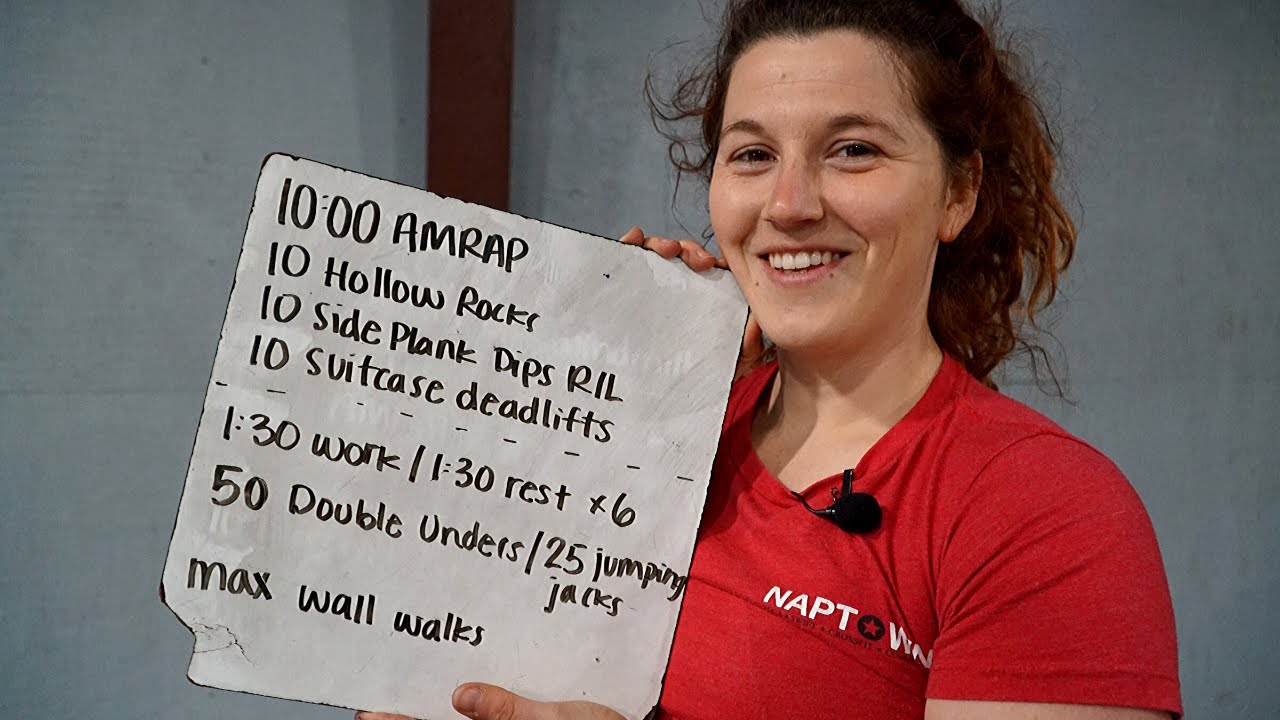 10:00 AMRAP
10 Hollow Rocks
10 Side Plank Dips R/L
10 suitcase deadlifts
1:30 work / 1:30 rest x6
50 Double Unders / 25 jumping
jacks
max wall walks
NAPTOWN